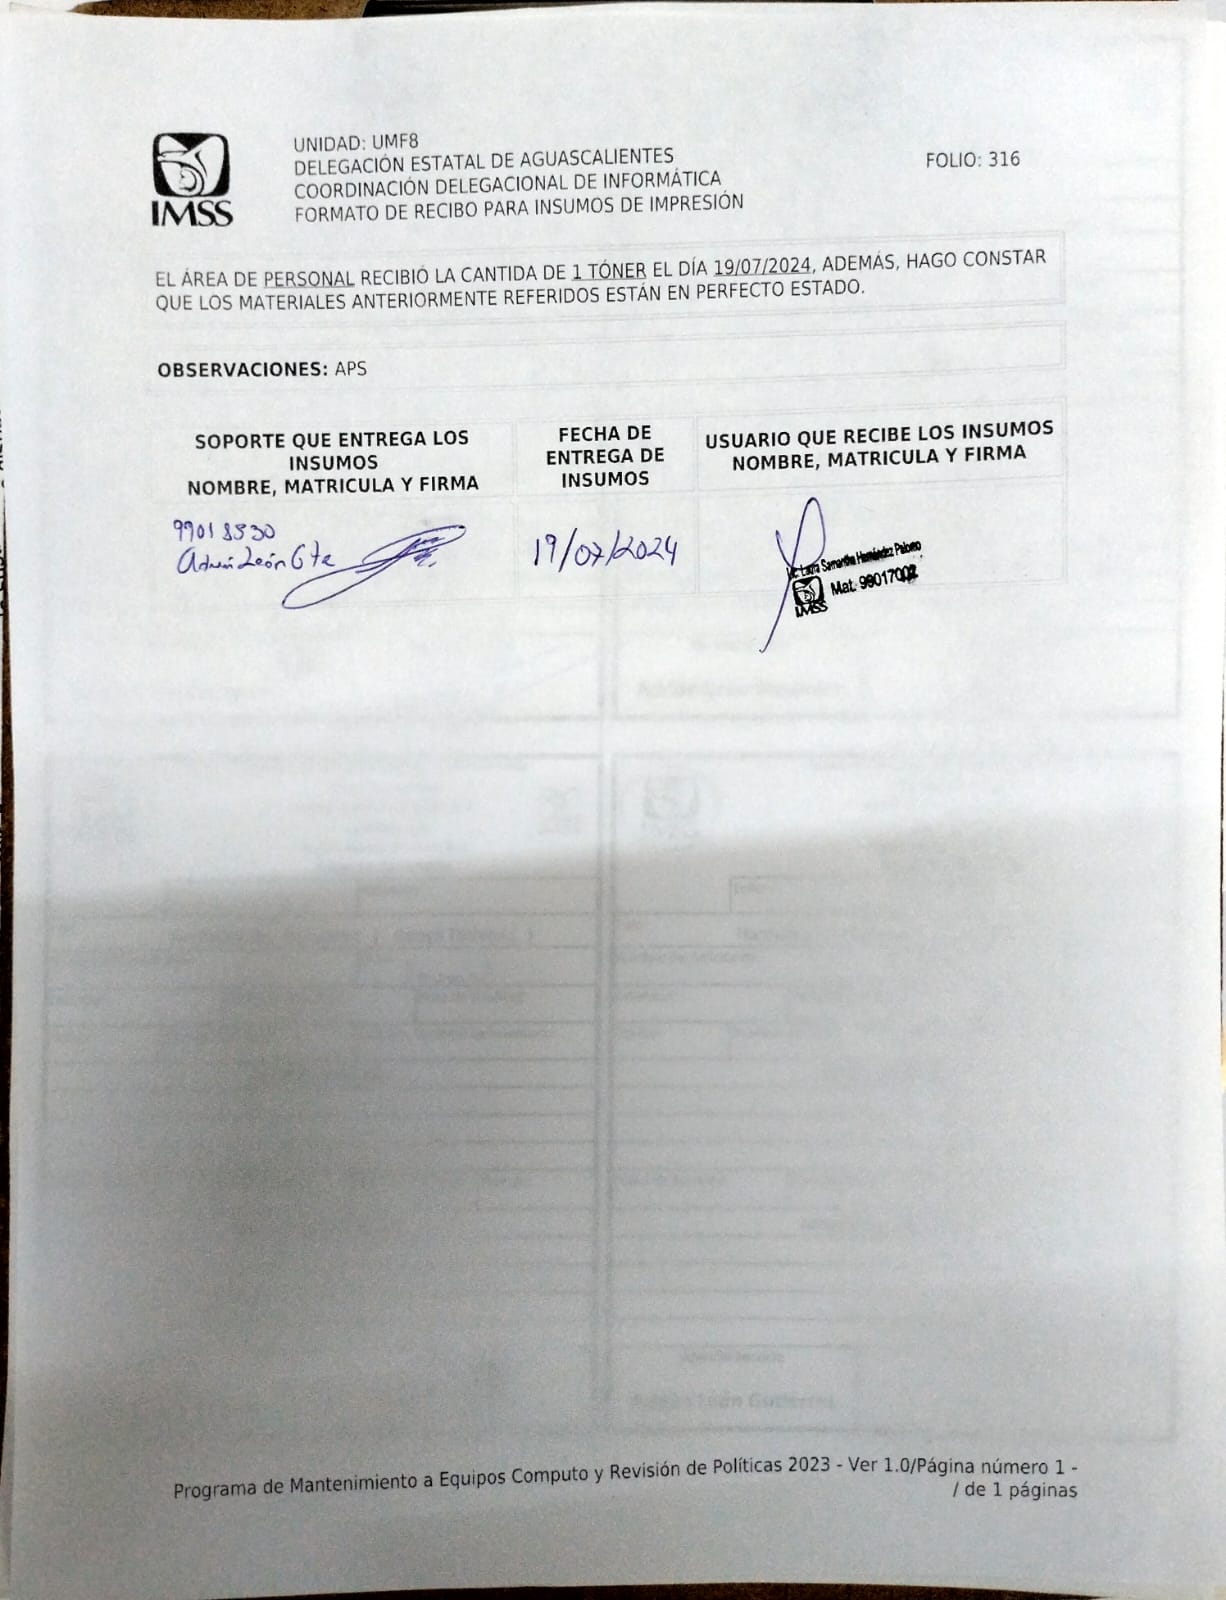 IMSS
UNIDAD: UMF8
DELEGACIÓN ESTATAL DE AGUASCALIENTES
COORDINACIÓN DELEGACIONAL DE INFORMÁTICA
FORMATO DE RECIBO PARA INSUMOS DE IMPRESIÓN
FOLIO: 316
EL ÁREA DE PERSONAL RECIBIÓ LA CANTIDA DE 1 TÓNER EL DÍA 19/07/2024, ADEMÁS, HAGO CONSTAR
QUE LOS MATERIALES ANTERIORMENTE REFERIDOS ESTÁN EN PERFECTO ESTADO.
OBSERVACIONES: APS
SOPORTE QUE ENTREGA LOS
INSUMOS
NOMBRE, MATRICULA Y FIRMA
FECHA DE
ENTREGA DE
INSUMOS
USUARIO QUE RECIBE LOS INSUMOS
NOMBRE, MATRICULA Y FIRMA
99018530
Adrián León Gtz
19/07/2024
Lic. Laura Samantha Hernández Palomo
Mat. 99017002
IMSS
Adrián León Gutierrez
Programa de Mantenimiento a Equipos Computo y Revisión de Políticas 2023 - Ver 1.0/Página número 1 -
/ de 1 páginas